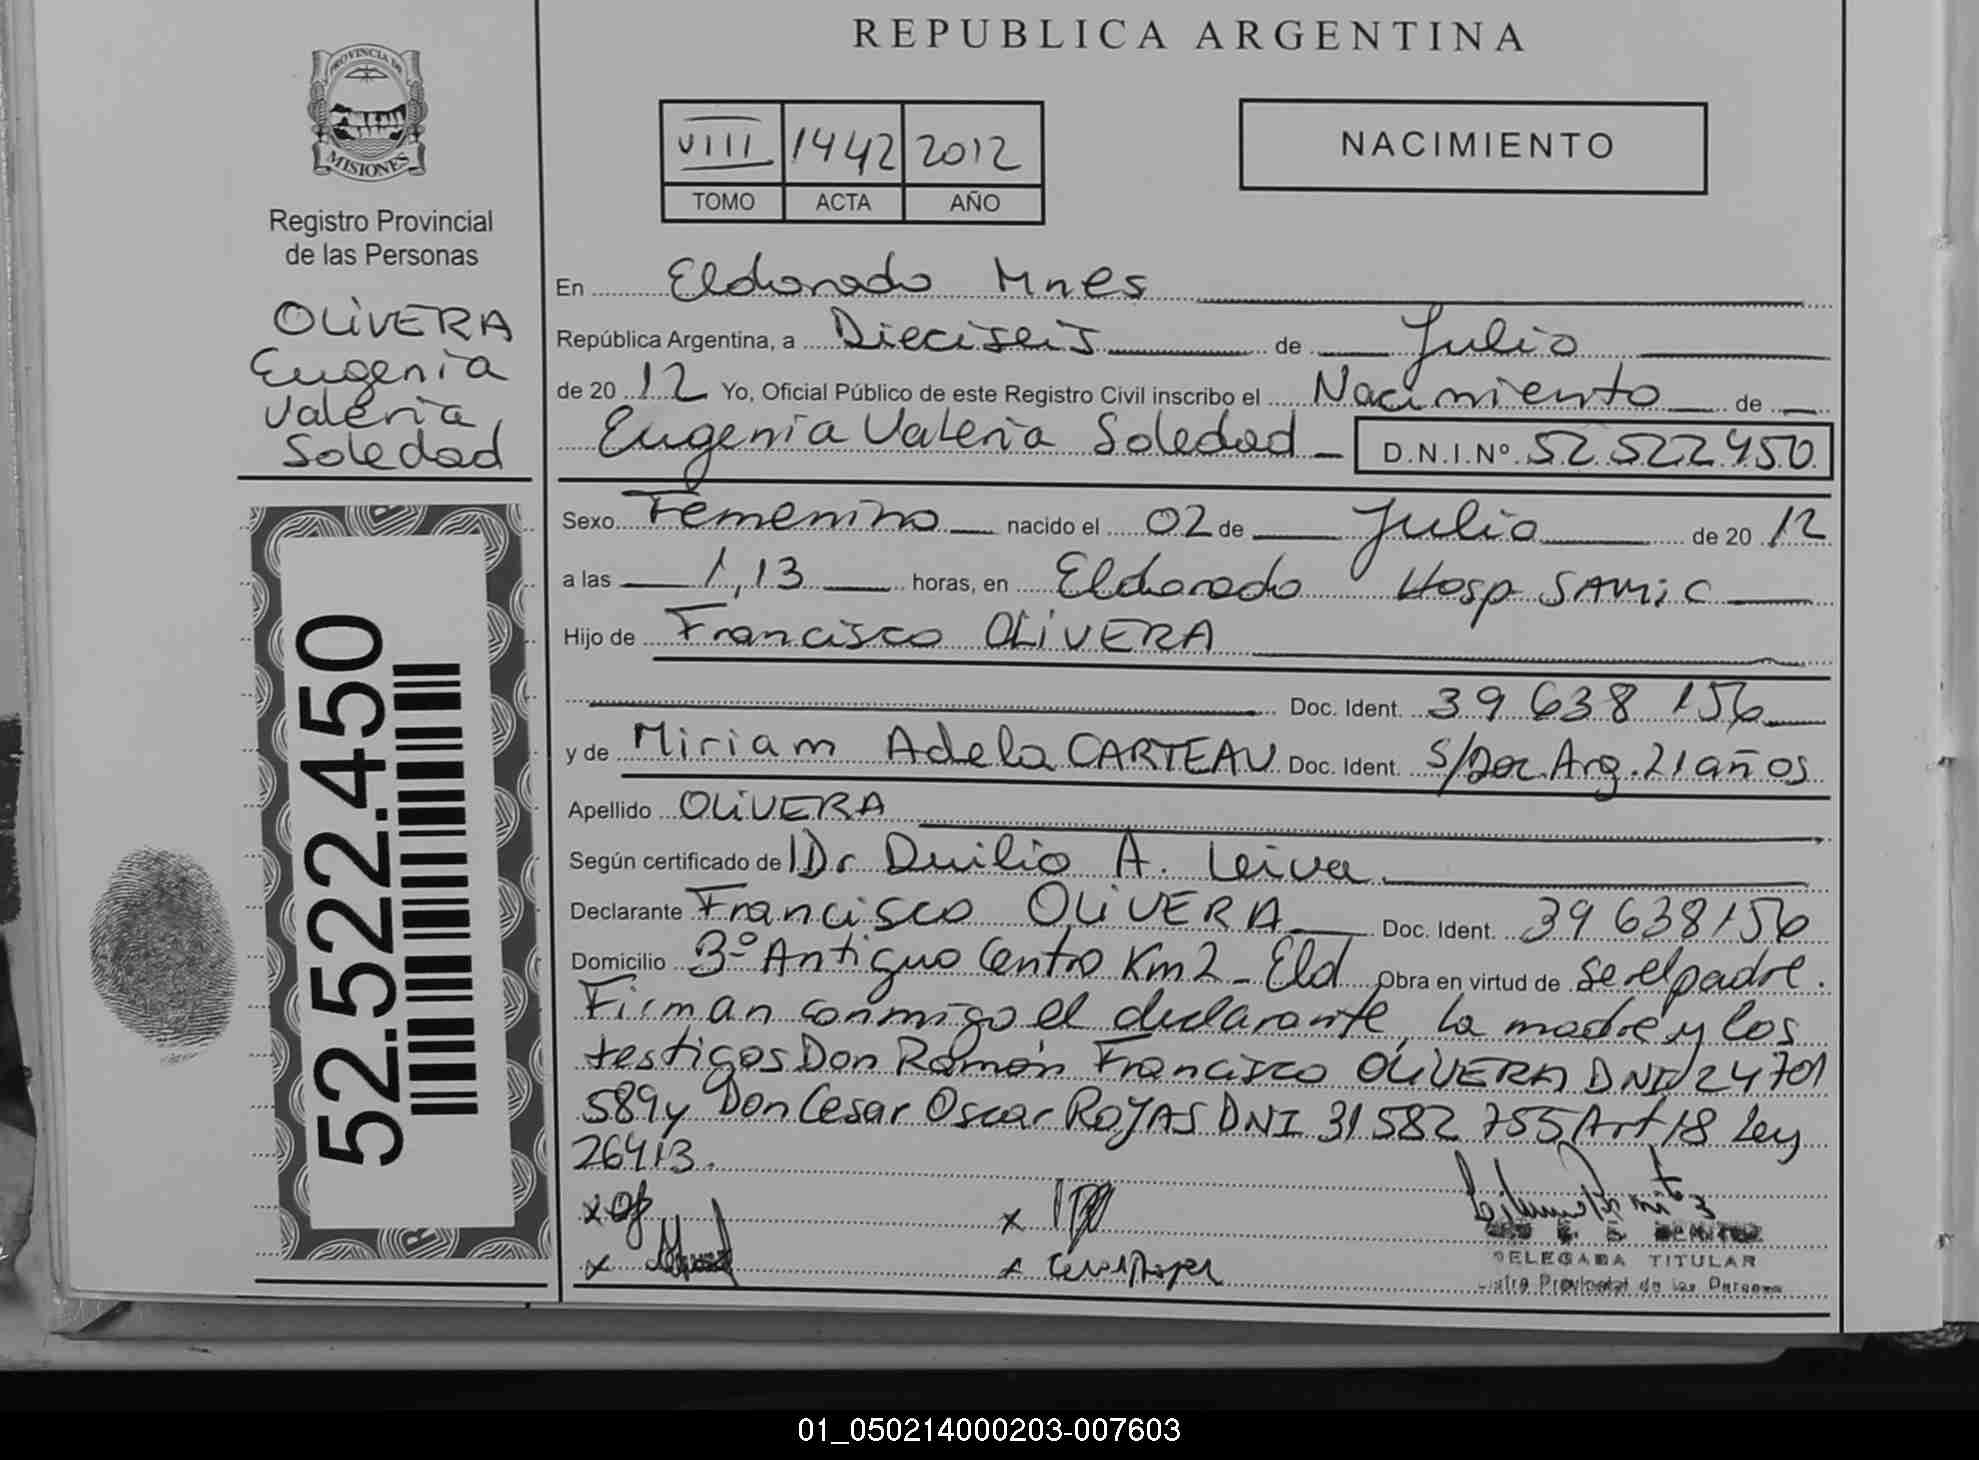 REPUBLICA ARGENTINA
PROVINCIA DE
MISIONES
Registro Provincial
de las Personas
OLIVERA
Eugenia
Valeria
Soledad
52.522.450
VIII 1442 2012
TOMO ACTA AÑO
NACIMIENTO
En Eldorado Mnes
República Argentina, a Dieciseis de Julio
de 2012 Yo, Oficial Público de este Registro Civil inscribo el Nacimiento de
Eugenia Valeria Soledad D.N.I.Nº 52.522.450
Sexo Femenino nacido el 02 de Julio de 2012
a las 1,13 horas, en Eldorado Hosp SAMIC
Hijo de Francisco OLIVERA
Doc. Ident. 39 638 156
y de Miriam Adela CARTEAU Doc. Ident. s/Doc. Arg. 21 años
Apellido OLIVERA
Según certificado de Dr Duilio A. Leiva
Declarante Francisco OLIVERA Doc. Ident. 39 638 156
Domicilio Bº Antiguo Centro Km2 - Eld Obra en virtud de ser el padre.
Firman conmigo el declarante, la madre y los
testigos Don Ramón Francisco OLIVERA DNI 24 701
589 y Don Cesar Oscar ROJAS DNI 31 582 755 Art 18 Ley
26413.
DELEGADA TITULAR
Provincial de las Personas
01_050214000203-007603